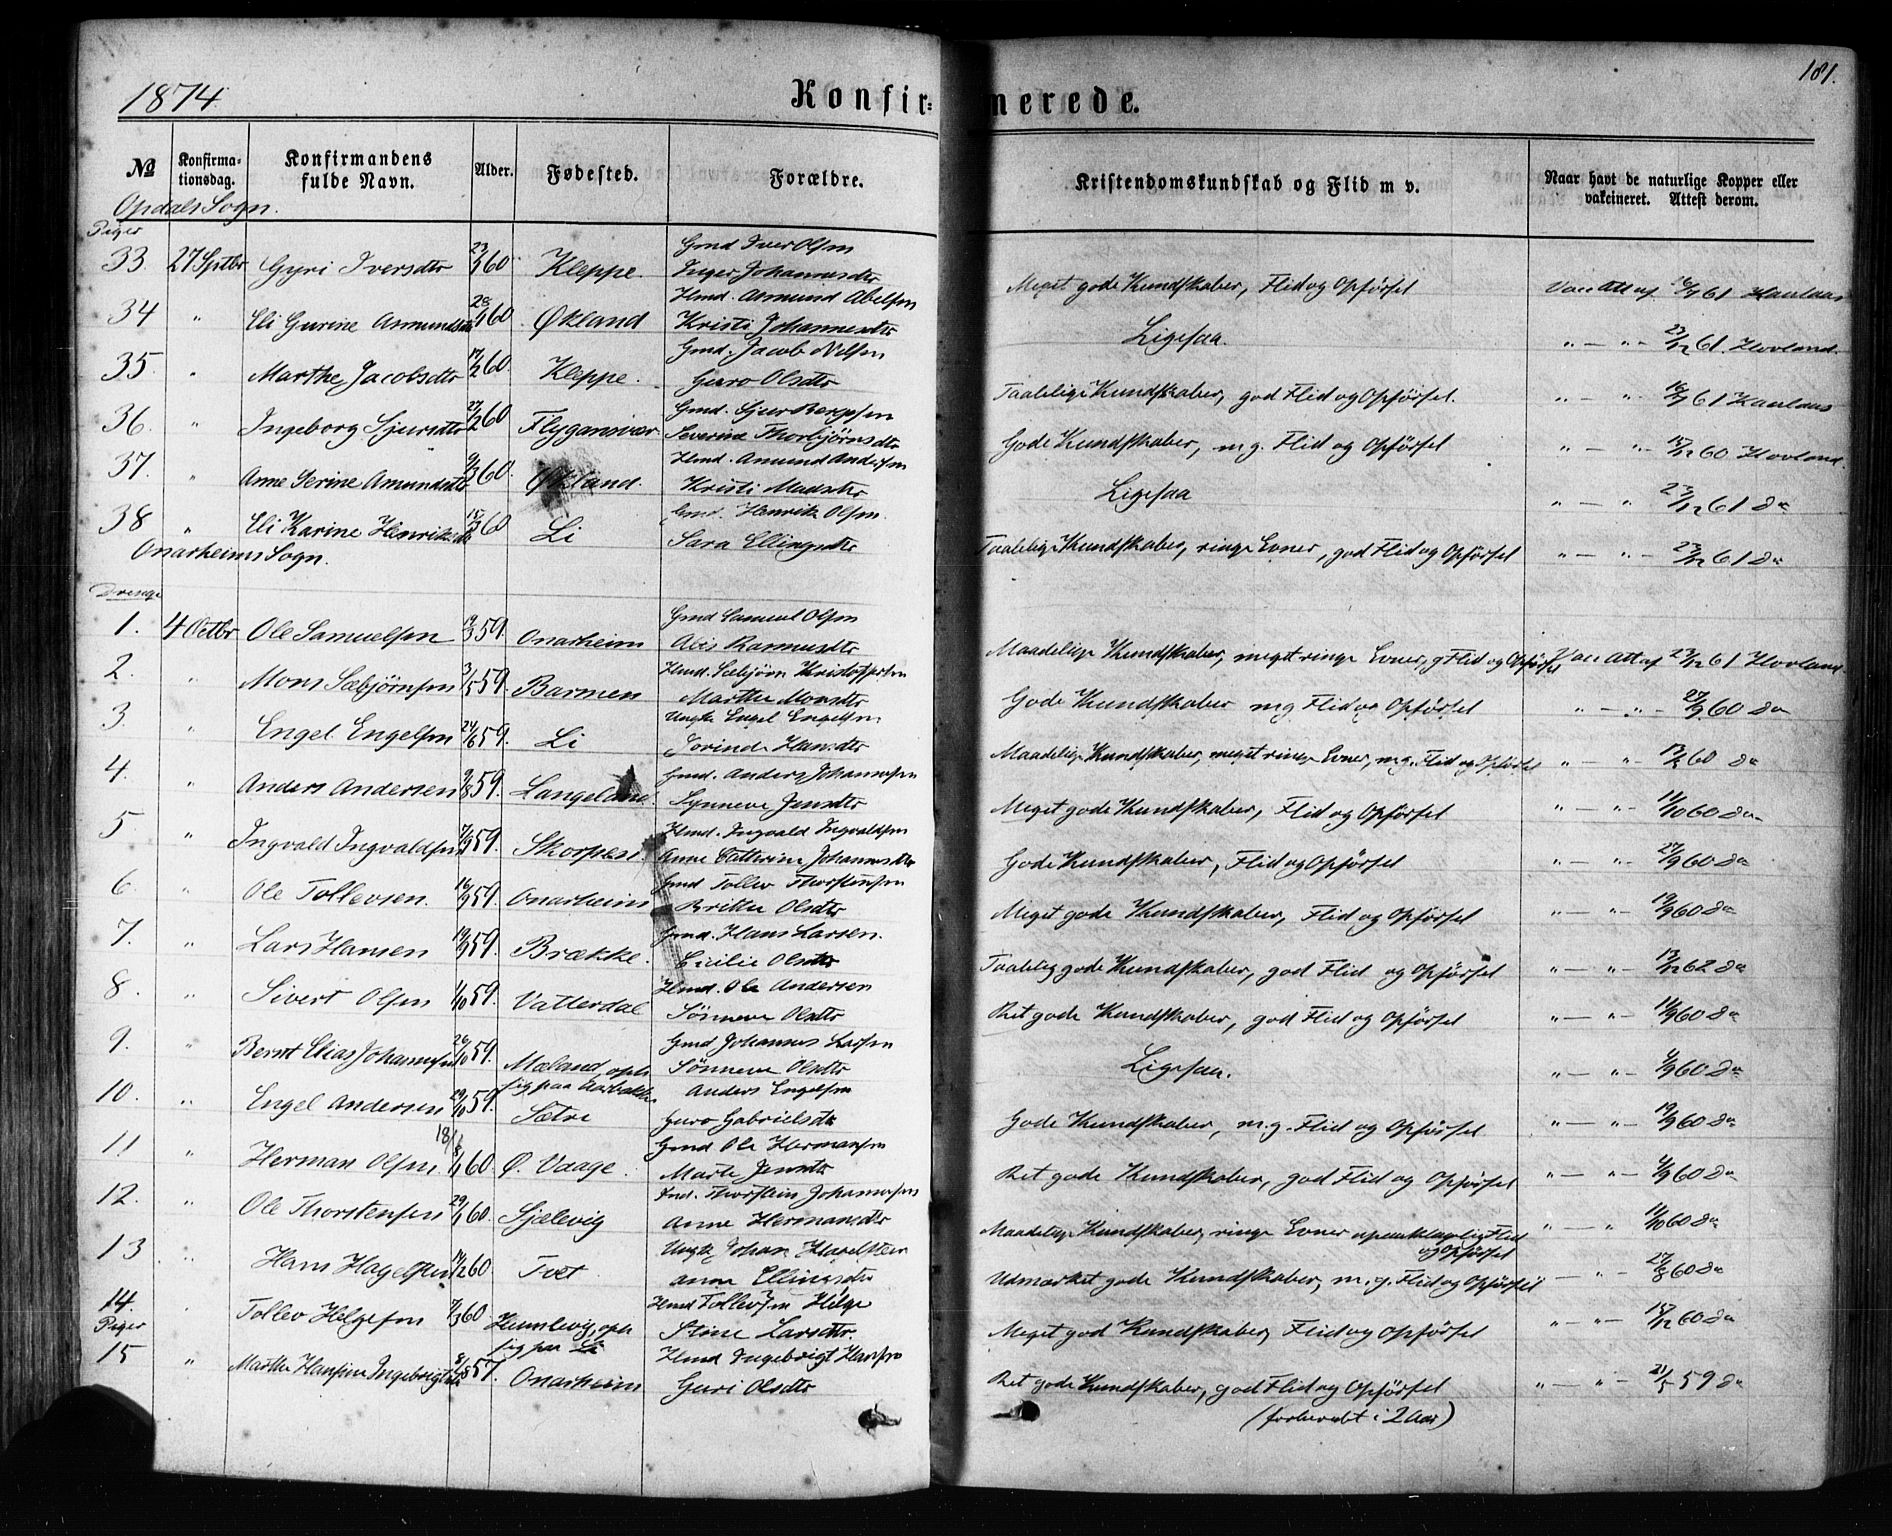 181.
1874. Konfir= merede.
№ Konfirma-tionsdag. Konfirmandens fulde Navn. Alder. Fødested. Forældre. Kristendomskundskab og Flid m v. Naar havt de naturlige Kopper eller vakcineret. Attest derom.
Opdals Sogn.
Piger
Gmd Iver Olsen
33. 27 Sptbr Gyri Iversdtr 60. Kleppe. Inger Johannesdtr Meget gode Kundskaber, Flid og Opførsel Vac Att af 61
Hmd. Asmund Abelsen
34 " Eli Gurine 60 Økland Kristi Johannesdtr Ligesaa. " — " - 23/12 61. Hovland.
Gmd. Jacob Nilsen
35. " Marthe Jacobsdtr 60. Kleppe. Guro Olsdtr Taalelige Kundskaber, god Flid og Opførsel. " — " - 61
Gmd. Sjur
36. " Ingeborg Sjursdtr 27/2 60 Severine Thorbjørnsdtr Gode Kundskaber, m.g. Flid og Opførsel " — " - 60 Hovland.
Hmd. Amund Andersen
37. " Anne Serine Amundsdtr 60. Økland. Kristi Madsdtr Ligesaa " — " 23/12 61 do
Gmd. Henrik Olsen.
38 " Eli Karine Henriksdtr 60 Li Sara Ellingsdtr Taalelige Kundskaber, ringe Evner, god Flid og Opførsel " — " - 23/12 61 do
Onarheims Sogn.
Drenge
Gmd Samuel Olsen
1. 4 Octbr Ole Samuelsen 59. Onarheim Rasmusdtr Maadelige Kundskaber, meget ringe Evner, g Flid og Opførsel Vac Att af 23/12 61 Hovland
Hmd. Sæbjørn Kristoffersen
2. " Mons Sæbjørnsen 3/5 59. Barmen Marthe Monsdtr Gode Kundskaber m g Flid og Opførsel " — " - 27/9 60 do
Ungk Engel Engelsen
3. " Engel Engelsen 24/6 59. Li Hansdtr Maadelige Kundskaber, meget ringe Evner, m.g. Flid og Opførsel " — " - 60 do
Gmd. Anders Johannesen
4. " Anders Andersen 9/8 59. Langeland. Synneve Jensdtr Meget gode Kundskaber, Flid og Opførsel " — " - 11/10 60 do
Hmd. Ingvald Ingvaldsen
5. " Ingvald Ingvaldsen 7/9 59. Skorpen Anne Cathrine Johannesdtr Gode Kundskaber, Flid og Opførsel " — " - 27/9 60 do
Gmd Tollev Thorstensen
6. " Ole Tollevsen. 16/9 59. Onarheim Britha Olsdtr Meget gode Kundskaber, Flid og Opførsel " — " - 19/9 60 do
Gmd. Hans Larsen.
7. " Lars Hansen 19/9 59. Brække. Cicilie Olsdtr Taalelig gode Kundskaber, god Flid og Opførsel " — " - 62 do
Hmd. Ole Andersen
8. " Sivert Olsen 1/10 59. Vatterdal Sönneva Olsdtr Ret gode Kundskaber, god Flid og Opførsel " — " - 60 do
Gmd Johannes Larsen
9. " Bernt Elias Johannesen 26/10 59. Mæland, oph. Sönneva Olsdtr Ligesaa. " — " - 60 do
sig paa Aarbakke
Anders Engelsen
10. " Engel Andersen 29/10 59. Sætre Guro Gabrielsdtr Gode Kundskaber, m.g. Flid og Opførsel " — " - 19/9 60 do
18/
Gmd Ole Hermansen
11 " Herman Olsen 60. Ø. Vaage. Marte Jensdtr Ret gode Kundskaber, god Flid og Opførsel " — " - 60 do
Thorstein Johannesen
12. " Ole Thorstensen 29/1 60. Sjelevig Anne Hermansdtr Maadelige Kundskaber, ringe Evner upaaklagelig Flid " — " 60 do
og Opførsel
Ungk Johan
13 " Hans 60. Tvet. Anna Ellingsdtr Udmærket gode Kundskaber, m.g. Flid og Opførsel " — " - 27/8 60 do
Hmd Tollevsen Helge
14. Tollev Helgesen 60 Humlevig, oph Stine Larsdtr Meget god Kundskaber, Flid og Opførsel " — " - 60 do
Piger sig paa Li
Hmd Ingebrigt Hansen
15 " Marthe Hansine Ingebrigtsdtr 57. Onarheim Guri Olsdtr Ret gode Kundskaber, god Flid og Opførsel " — " - 21/5 59 do
(forberedt i 2 Aar)